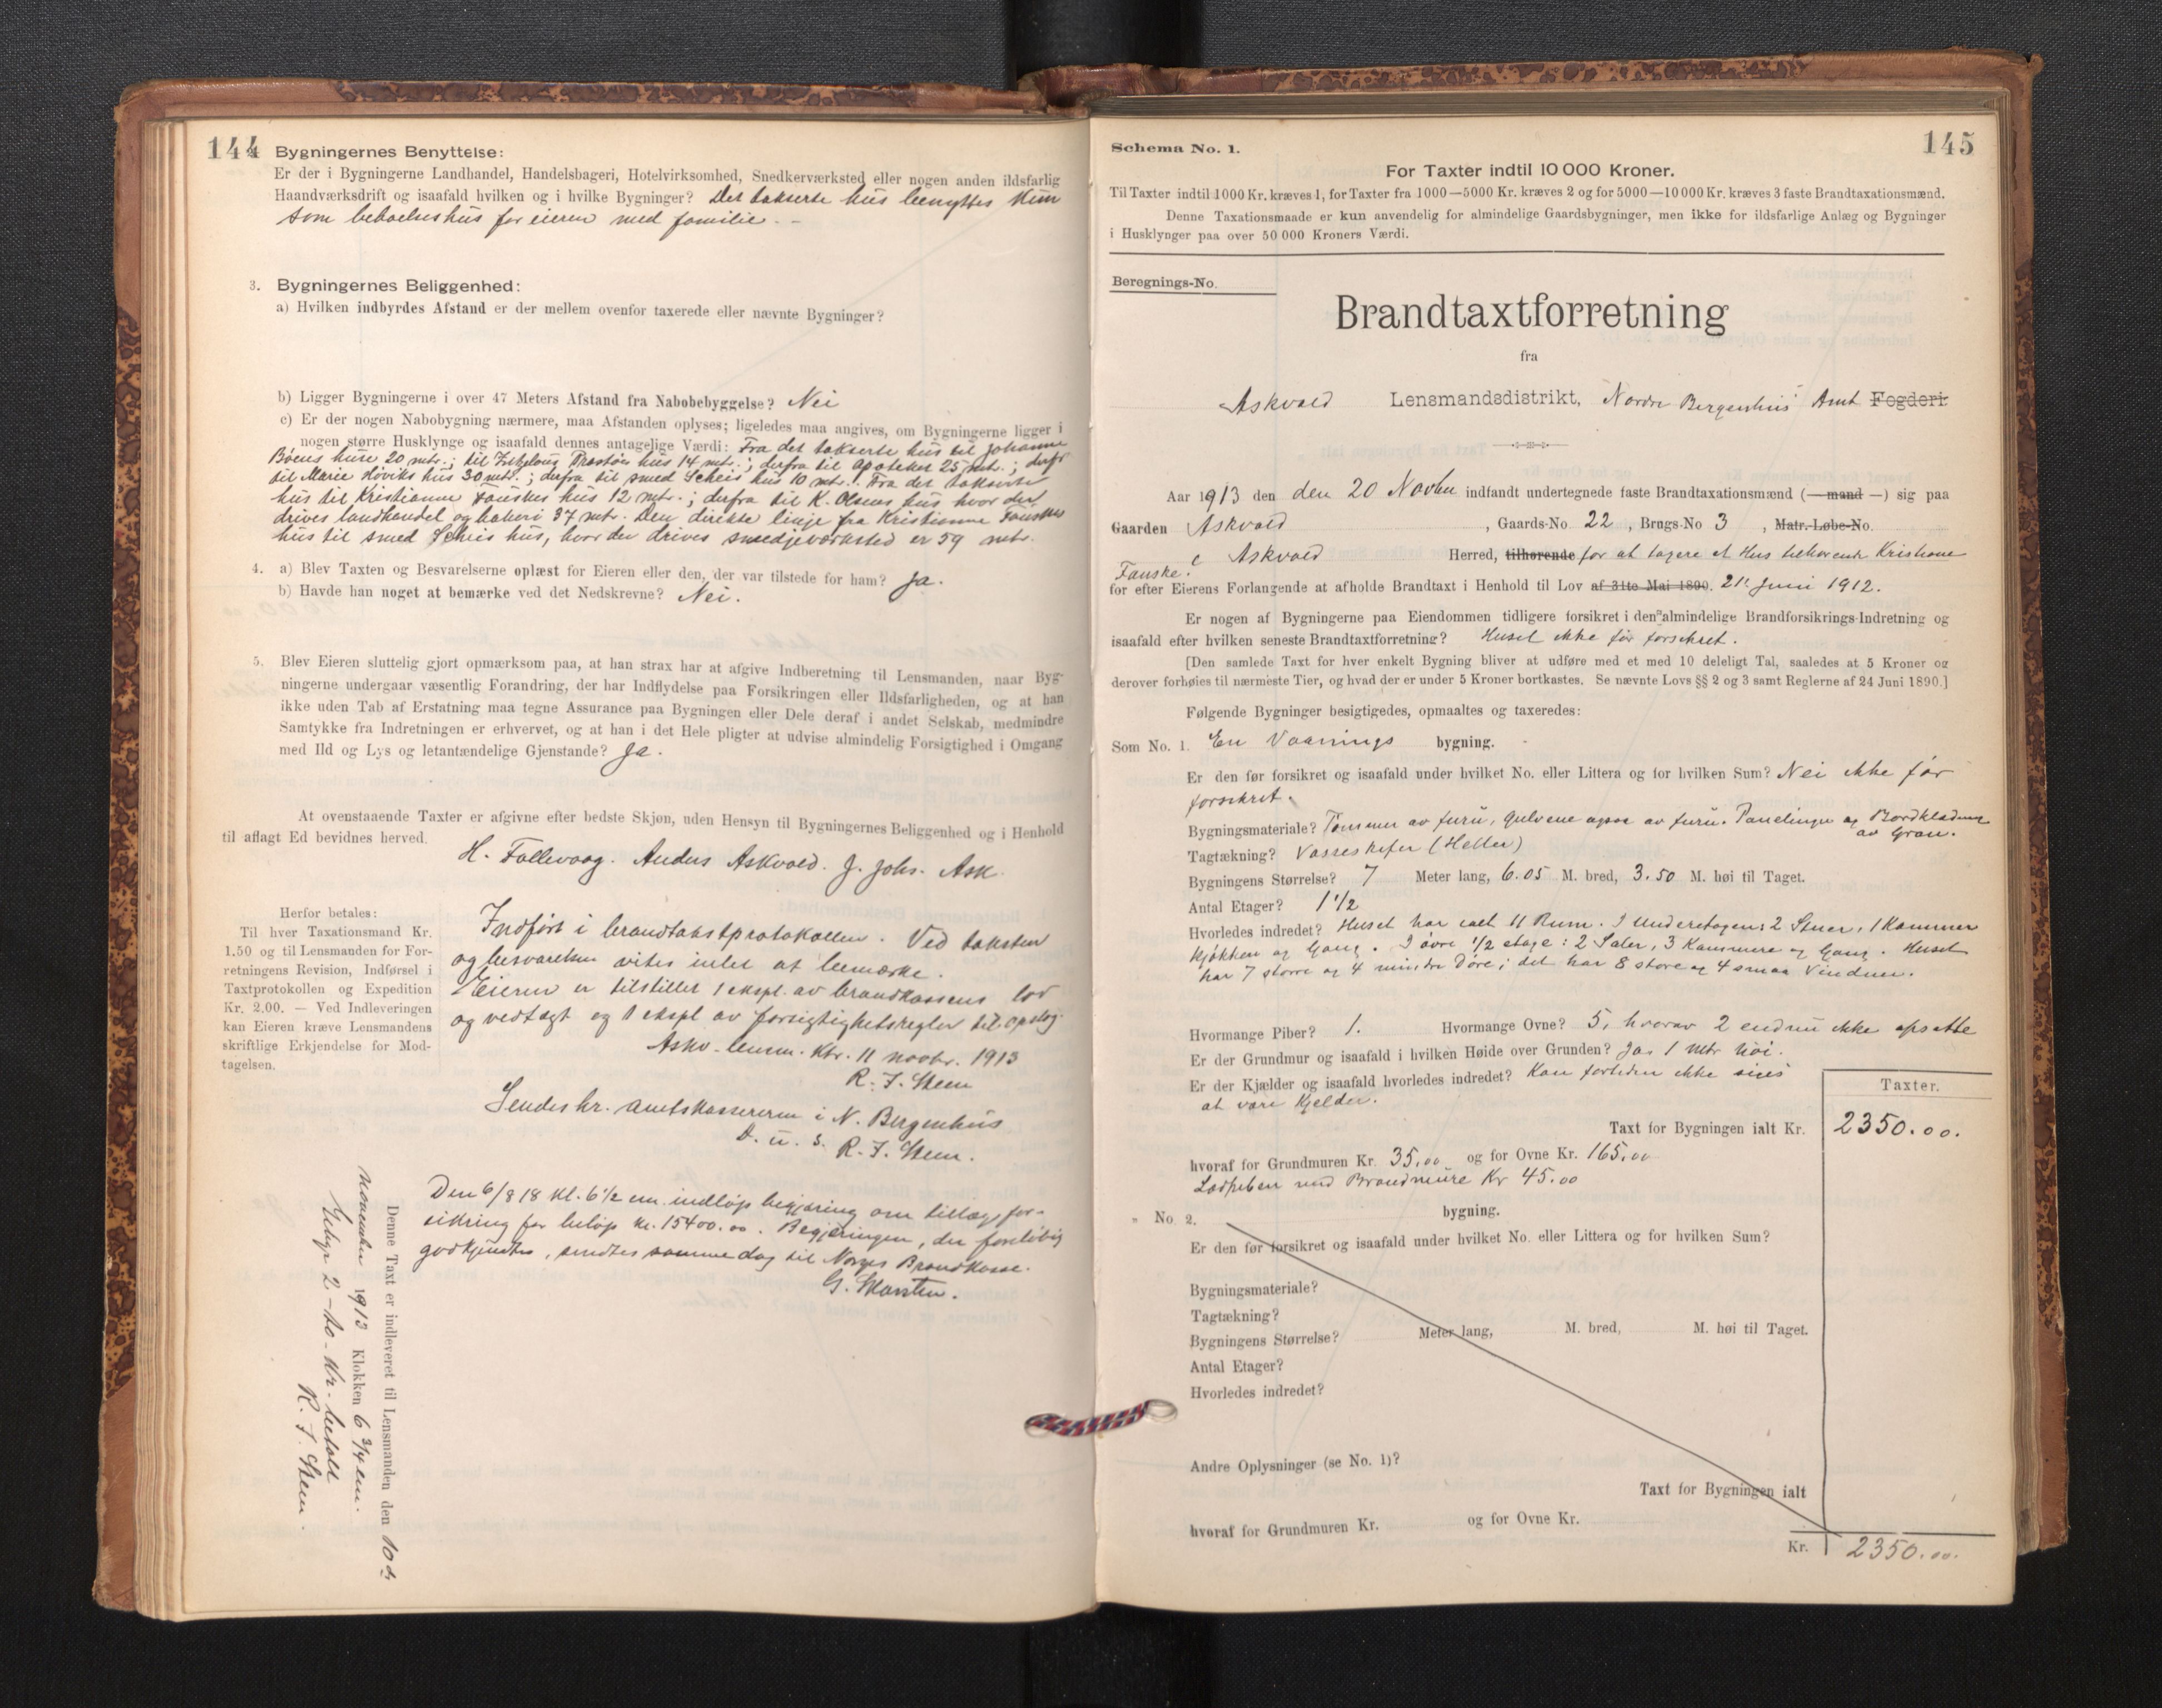 144
Bygningernes Benyttelse:
Er der i Bygningerne Landhandel, Handelsbageri, Hotelvirksomhed, Snedkerværksted eller nogen anden ildsfarlig
Haandværksdrift og isaafald hvilken og i hvilke Bygninger? Det takserte hus benyttes kun
som beboelseshus for eieren med familie. -
3. Bygningernes Beliggenhed:
a) Hvilken indbyrdes Afstand er der mellem ovenfor taxerede eller nævnte Bygninger?
b) Ligger Bygningerne i over 47 Meters Afstand fra Nabobebyggelse? Nei
c) Er der nogen Nabobygning nærmere, maa Afstanden oplyses; ligeledes maa angives, om Bygningerne ligger i
nogen større Husklynge og isaafald dennes antagelige Værdi: Fra det takserte hus til Johanne
huse 20 mtr.; til hus 14 mtr.; derfra til apoteket 25 mtr.; derfr
til Marie Høviks hus 30 mtr.; derfra til smed Scheis hus 10 mtr. Fra det takserte
hus til Kristianne Fauskes hus 12 mtr.; derfra til K. Olsens hus hvor der
drives landhandel og bakeri 37 mtr. Den direkte linje fra Kristianne Fauskes
hus til smed Scheis hus, hvor der drives smedjeværksted er 59 mtr.
4. a) Blev Taxten og Besvarelserne oplæst for Eieren eller den, der var tilstede for ham? Ja.
b) Havde han noget at bemærke ved det Nedskrevne? Nei.
5. Blev Eieren sluttelig gjort opmærksom paa, at han strax har at afgive Indberetning til Lensmanden, naar Byg-
ningerne undergaar væsentlig Forandring, der har Indflydelse paa Forsikringen eller Ildsfarligheden, og at han
ikke uden Tab af Erstatning maa tegne Assurance paa Bygningen eller Dele deraf i andet Selskab, medmindre
Samtykke fra Indretningen er erhvervet, og at han i det Hele pligter at udvise almindelig Forsigtighed i Omgang
med Ild og Lys og letantændelige Gjenstande? Ja.
At ovenstaaende Taxter er afgivne efter bedste Skjøn, uden Hensyn til Bygningernes Beliggenhed og i Henhold
til aflagt Ed bevidnes herved.
H. Follevaag. Anders Askvold. J. Johs. Ask.
Herfor betales:
Til hver Taxationsmand Kr.
1.50 og til Lensmanden for For-
retningens Revision, Indførsel i
Taxtprotokollen og Expedition
Kr. 2.00. — Ved Indleveringen
kan Eieren kræve Lensmandens
skriftlige Erkjendelse for Mod-
tagelsen.
Indført i brandtakstprotokollen. Ved taksten
og besvarelsen vites intet at bemærke.
Eieren er tilstillet 1 ekspl. av brandkassens lov
og vedtægt og 1 ekspl av forsigtighetsregler til opslag.
Askv. lensm. ktr. 11 novbr. 1913
R. J. Steen
Sendes hr. amtskassereren i N. Bergenhus
D. u. s. R. J. Steen.
Den 6/8 18 kl. 6 1/2 em. indløp begjæring om tillægsfor-
sikring for beløp kr. 15400.00. Begjæringen, der foreløbig
godkjendtes, sendtes samme dag til Norges Brandkasse.
Denne Taxt er indleveret til Lensmanden den 10de
november 1913 Klokken 6 3/4 em.
Gebyr 2-to-kr. betalt
R. J. Steen.
145
Schema No. 1.
For Taxter indtil 10 000 Kroner.
Til Taxter indtil 1000 Kr. kræves 1, for Taxter fra 1000—5000 Kr. kræves 2 og for 5000—10 000 Kr. kræves 3 faste Brandtaxationsmænd.
Denne Taxationsmaade er kun anvendelig for almindelige Gaardsbygninger, men ikke for ildsfarlige Anlæg og Bygninger
i Husklynger paa over 50 000 Kroners Værdi.
Beregnings-No.
Brandtaxtforretning
fra
Askvold Lensmandsdistrikt, Nordre Bergenhus Amt Fogderi
Aar 1913 den den 20 Novbr indfandt undertegnede faste Brandtaxationsmænd (—mand—) sig paa
Gaarden Askvold, Gaards-No 22, Brugs-No 3, Matr.-Løbe-No.
i Askvold Herred, tilhørende for at tagere et Hus tilhørende Kristiane
Fauske.
for efter Eierens Forlangende at afholde Brandtaxt i Henhold til Lov af 31te Mai 1890. 21. Juni 1912.
Er nogen af Bygningerne paa Eiendommen tidligere forsikret i den almindelige Brandforsikrings-Indretning og
isaafald efter hvilken seneste Brandtaxtforretning? Huset ikke før forsikret.
[Den samlede Taxt for hver enkelt Bygning bliver at udføre med et med 10 deleligt Tal, saaledes at 5 Kroner og
derover forhøies til nærmeste Tier, og hvad der er under 5 Kroner bortkastes. Se nævnte Lovs §§ 2 og 3 samt Reglerne af 24 Juni 1890.]
Følgende Bygninger besigtigedes, opmaaltes og taxeredes:
Som No. 1. En Vaanings bygning.
Er den før forsikret og isaafald under hvilket No. eller Littera og for hvilken Sum? Nei ikke før
forsikret.
Bygningsmateriale? Tømmer av furu, gulvene ogsaa av furu. Panelinger og Bordklædning
av Gran.
Tagtækning? Vasseskifer (Heller)
Bygningens Størrelse? 7 Meter lang, 6.05 M. bred, 3.50 M. høi til Taget.
Antal Etager? 1 1/2
Hvorledes indredet? Huset har ialt 11 Rum. I Underetagen: 2 Stuer, 1 Kammer
Kjøkken og Gang. I øvre 1/2 etage: 2 Saler, 3 Kammere og Gang. Huset
har 7 større og 4 mindre Døre; det har 8 store og 4 smaa Vinduer.
Hvormange Piber? 1. Hvormange Ovne? 5, hvorav 2 endnu ikke opsatte
Er der Grundmur og isaafald i hvilken Høide over Grunden? Ja 1 mtr høi.
Er der Kjælder og isaafald hvorledes indredet? Kan fortiden ikke siges
at være Kjelder.
Taxter.
Taxt for Bygningen ialt Kr. 2350.00.
hvoraf for Grundmuren Kr. 35,00 og for Ovne Kr. 165,00
Ladpiben med Brandmure Kr 45.00
" No 2. bygning.
Er den før forsikret og isaafald under hvilket No. eller Littera og for hvilken Sum?
Bygningsmateriale?
Tagtækning?
Bygningens Størrelse? Meter lang, M. bred, M. høi til Taget.
Antal Etager?
Hvorledes indredet?
Andre Oplysninger (se No. 1)?
Taxt for Bygningen ialt
hvoraf for Grundmuren Kr. og for Ovne Kr.
Kr. 2350.00.